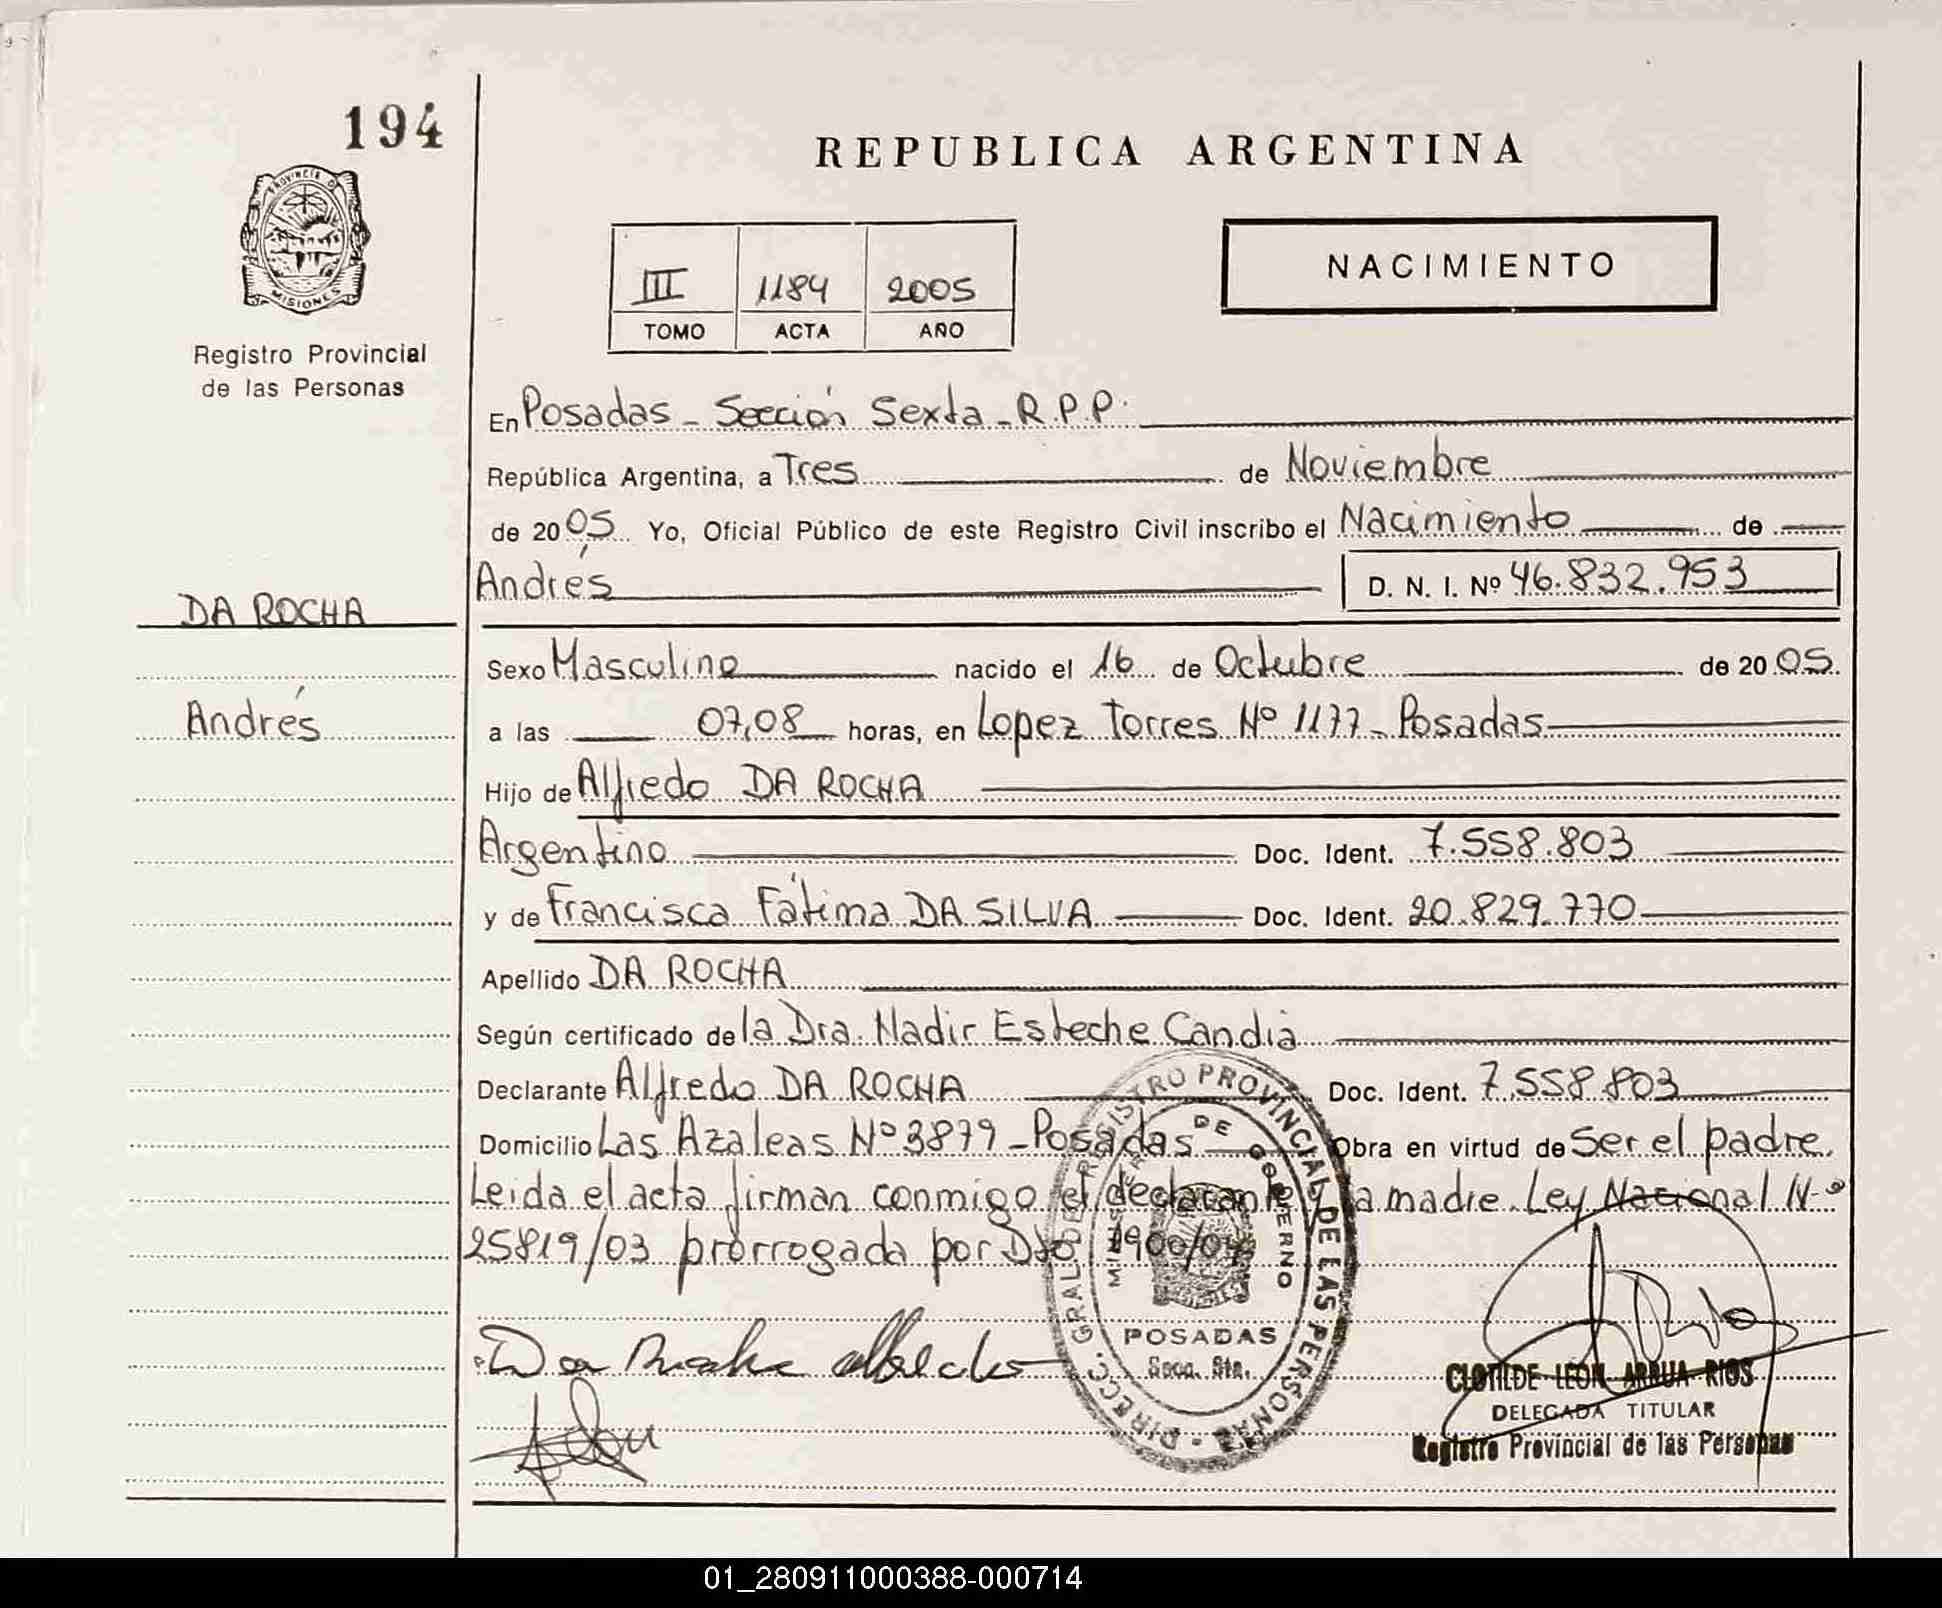 194
PROVINCIA DE
MISIONES
Registro Provincial
de las Personas
DA ROCHA
Andrés
REPUBLICA ARGENTINA
III 1184 2005
TOMO ACTA AÑO
NACIMIENTO
En Posadas - Sección Sexta - R.P.P.
República Argentina, a Tres de Noviembre
de 2005 Yo, Oficial Público de este Registro Civil inscribo el Nacimiento de
Andrés D. N. I. Nº 46.832.953
Sexo Masculino nacido el 16 de Octubre de 2005.
a las 07,08 horas, en Lopez Torres Nº 1177 - Posadas
Hijo de Alfredo DA ROCHA
Argentino Doc. Ident. 7.558.803
y de Francisca Fátima DA SILVA Doc. Ident. 20.829.770
Apellido DA ROCHA
Según certificado de la Dra. Nadir Esteche Candia
Declarante Alfredo DA ROCHA Doc. Ident. 7.558.803
Domicilio Las Azaleas Nº 3879 - Posadas Obra en virtud de Ser el padre.
Leida el acta firman conmigo el declarante y la madre. Ley Nacional Nº
25819/03 prorrogada por Dto 1900/04
Da Rocha alfredo
DIRECC. GRAL. DE REGISTRO PROVINCIAL DE LAS PERSONAS
MINISTERIO DE GOBIERNO
POSADAS
Secc. 6ta.
CLOTILDE LEON ARRUA RIOS
DELEGADA TITULAR
Registro Provincial de las Personas
01_280911000388-000714